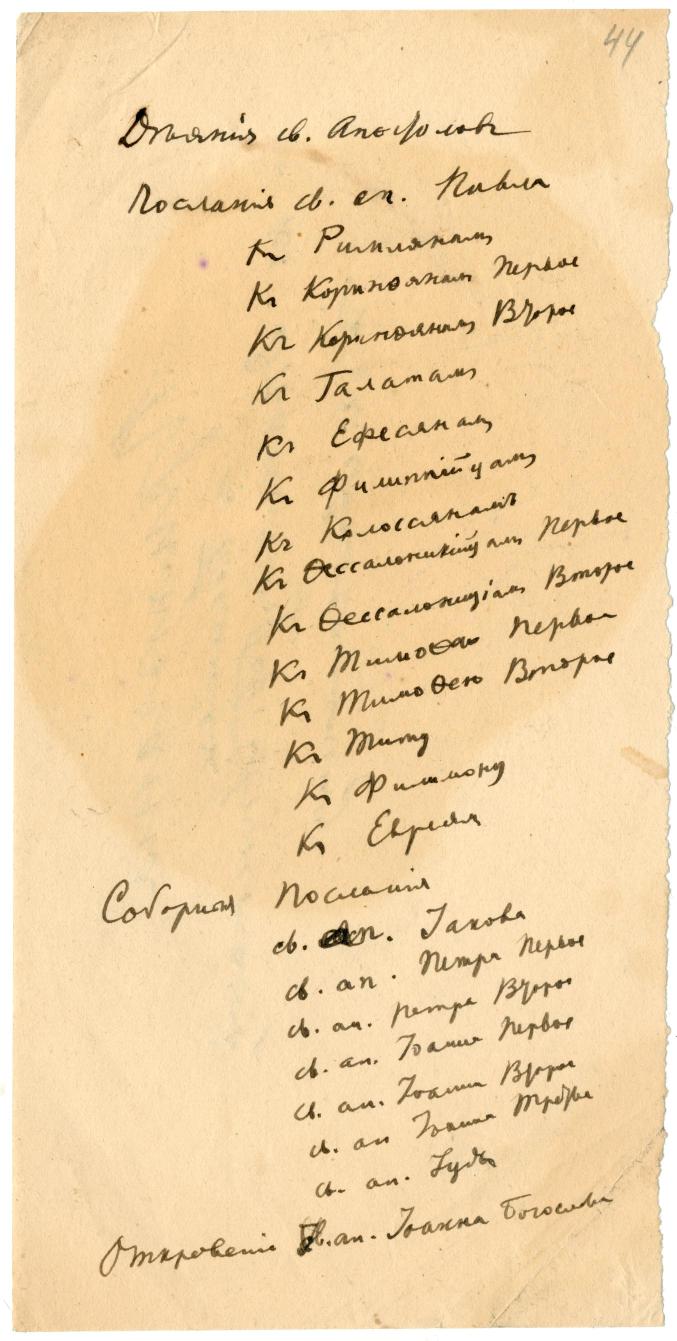 44
Дѣянія св. Апостоловъ
Посланія св. ап. Павла
Къ Римлянамъ
Къ Коринѳянамъ Первое
Къ Коринѳянамъ Второе
Къ Галатамъ
Къ Ефесянамъ
Къ Филиппійцамъ
Къ Колоссянамъ
Къ Ѳессалоникійцамъ Первое
Къ Ѳессалоницiамъ Второе
Къ Тимоѳею Первое
Къ Тимоѳею Второе
Къ Титу
Къ Филимону
Къ Евреям
Соборныя Посланія
св. ап. Iакова
св. ап. Петра Первое
св. ап. Петра Второе
св. ап. Iоанна Первое
св. ап. Iоанна Второе
св. ап Iоанна Третье
св. ап. Iуды
Откровенiе Св. ап. Iоанна Богослова